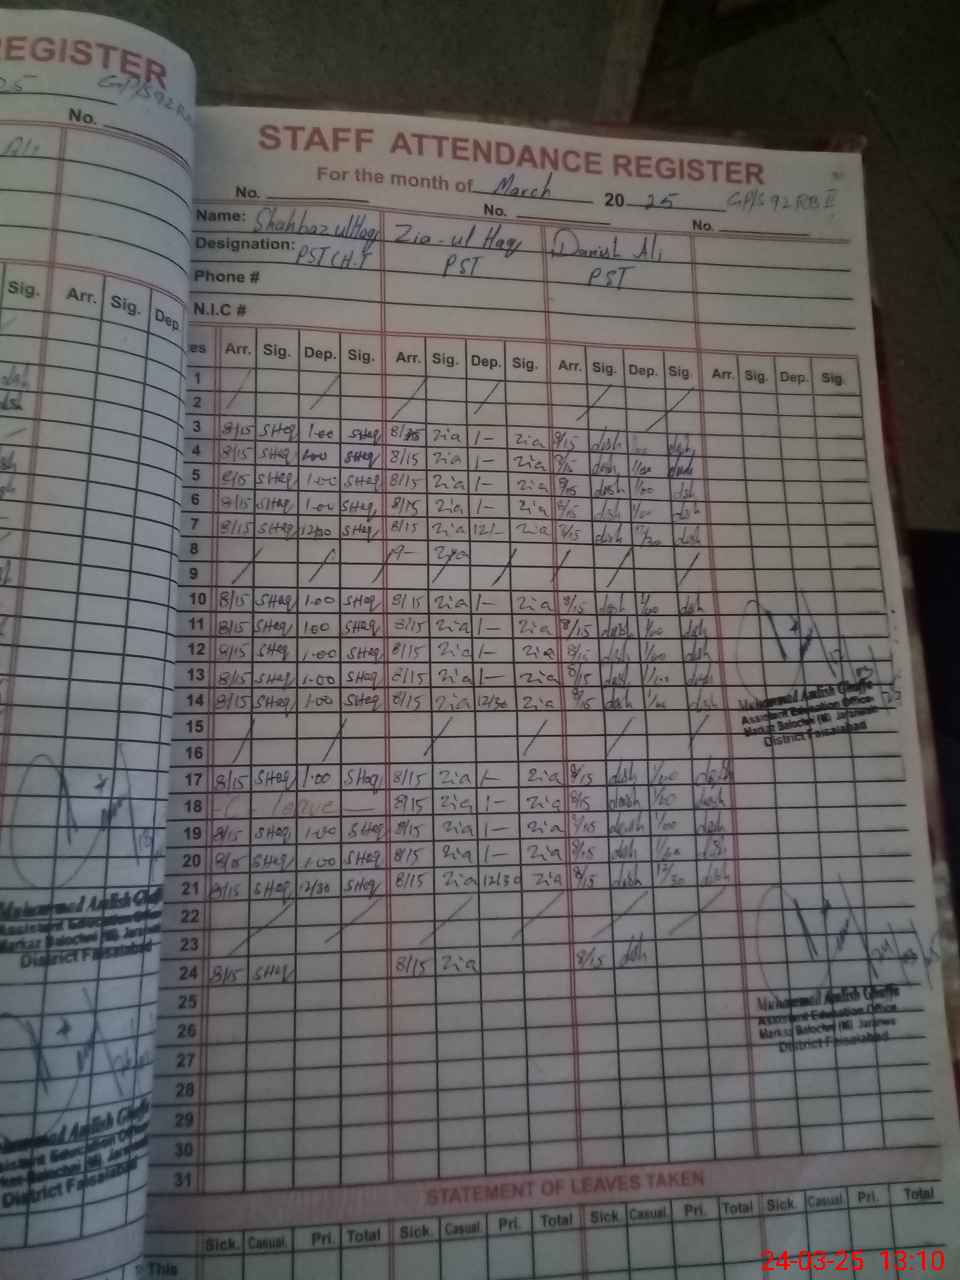 REGISTER
No.
Sig. Arr. Sig. Dep.
STAFF ATTENDANCE REGISTER
For the month of March 2025 GP/S 92 RB II
No. No. No.
Name: Shahbaz ul Haq Zia-ul Haq Danish Ali
Designation: PST CH.T PST PST
Phone #
N.I.C #
es Arr. Sig. Dep. Sig. Arr. Sig. Dep. Sig. Arr. Sig. Dep. Sig. Arr. Sig. Dep. Sig.
1
2
3 8/15 SHaq 1.00 SHaq Zia 1- Zia 8/15 dsh dsh
4 8/15 SHaq 1.00 SHaq 8/15 Zia 1- Zia 8/15 dsh 1/00 dsh
5 8/15 SHaq 1.00 SHaq 8/15 Zia 1- Zia 8/15 dsh 1/00 dsh
6 8/15 SHaq 1.00 SHaq 8/15 Zia 1- Zia 8/15 dsh 1/00 dsh
7 8/15 SHaq 12/30 SHaq 8/15 Zia 12/- Zia 8/15 dsh dsh
8
9
10 8/15 SHaq 1.00 SHaq 8/15 Zia 1- Zia 8/15 dsh 1/00 dsh
11 8/15 SHaq 1.00 SHaq 8/15 Zia 1- Zia 8/15 dsh 1/00 dsh
12 8/15 SHaq 1.00 SHaq 8/15 Zia 1- Zia 8/15 dsh 1/00 dsh
13 8/15 SHaq 1.00 SHaq 8/15 Zia 1- Zia 8/15 dsh 1/00 dsh
14 8/15 SHaq 1.00 SHaq 8/15 Zia 12/30 Zia 8/15 dsh dsh
Assistant Education Office
District Faisalabad
15
16
17 8/15 SHaq 1.00 SHaq 8/15 Zia 1- Zia 8/15 dsh 1/00 dsh
18 - C - leave - 8/15 Zia 1- Zia 8/15 dsh 1/00 dsh
19 8/15 SHaq 1.00 SHaq 8/15 Zia 1- Zia 8/15 dsh 1/00 dsh
20 8/15 SHaq 1.00 SHaq 8/15 Zia 1- Zia 8/15 dsh 1/00 dsh
21 8/15 SHaq 12/30 SHaq 8/15 Zia 12/30 Zia 8/15 dsh 12/30 dsh
22
23
24 8/15 SHaq 8/15 Zia 8/15 dsh
Assistant Education Office
District Faisalabad
25
26
27
28
29
30
31
STATEMENT OF LEAVES TAKEN
Sick. Casual. Pri. Total Sick. Casual. Pri. Total Sick. Casual. Pri. Total Sick. Casual. Pri. Total
This
24-03-25 13:10